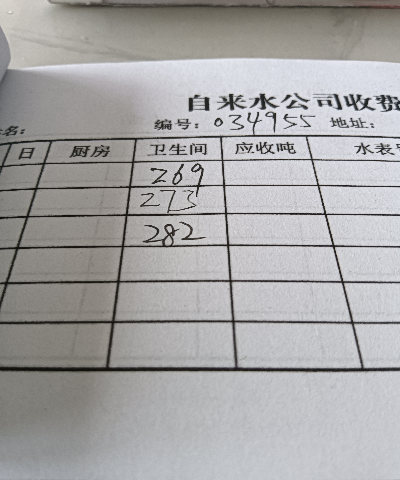 自来水公司收费
名： 编号：034955 地址：
日 厨房 卫生间 应收吨 水表
269
273
282